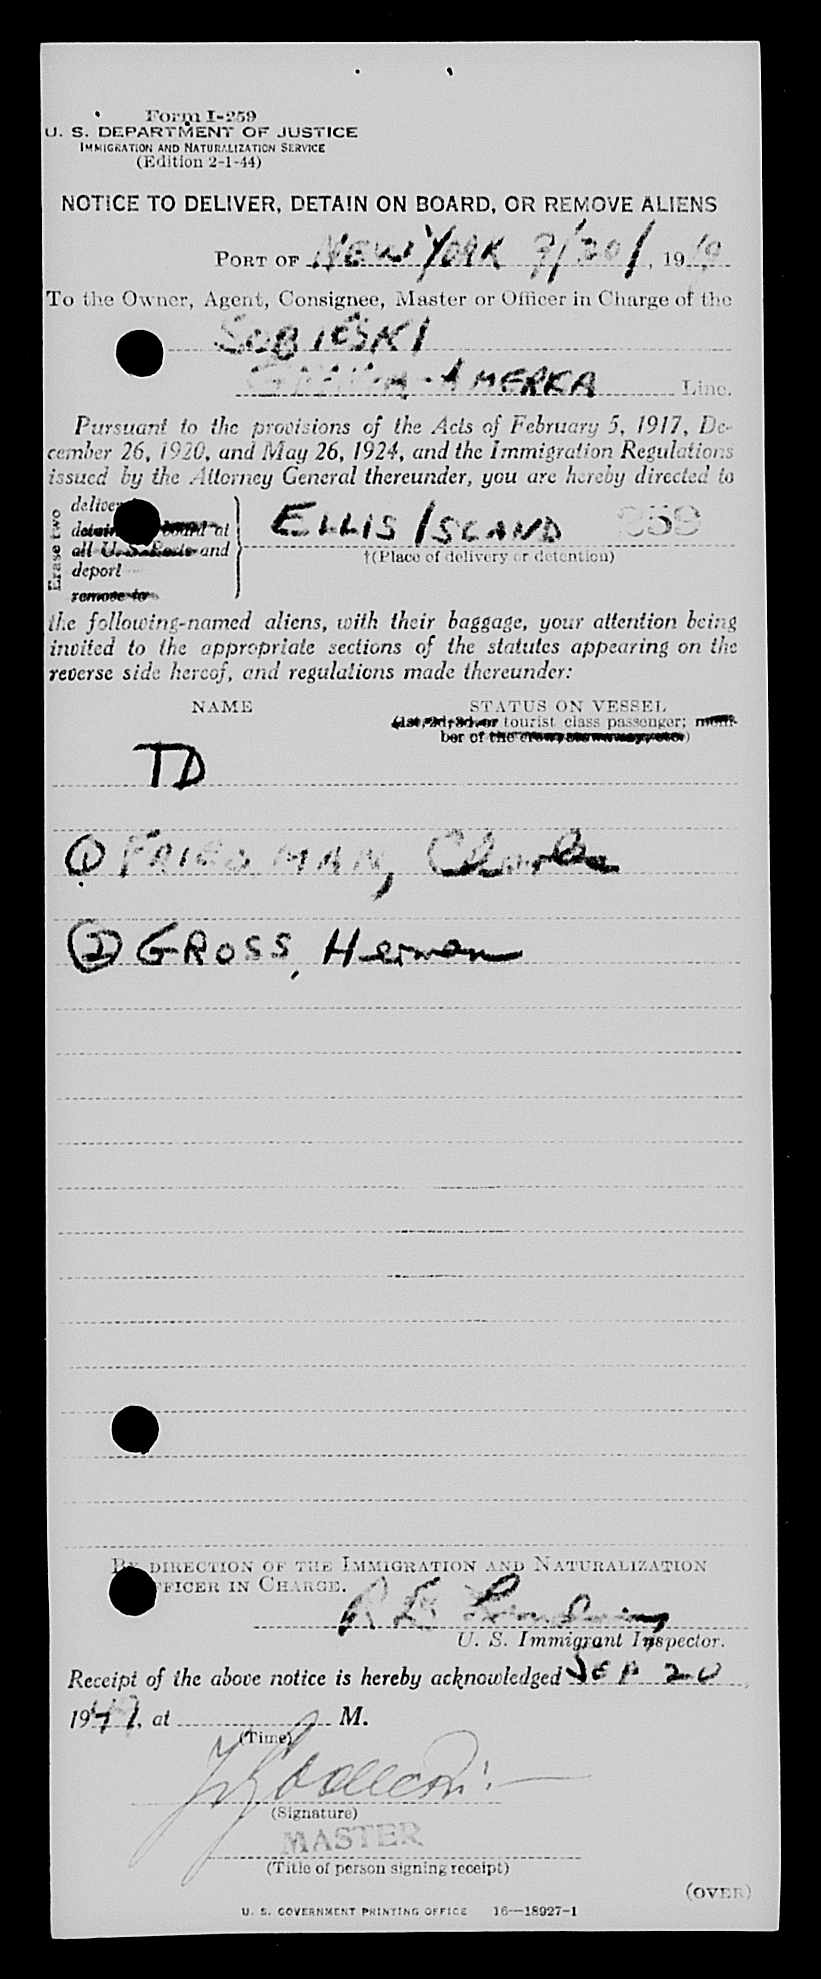 Form I-259
U. S. DEPARTMENT OF JUSTICE
IMMIGRATION AND NATURALIZATION SERVICE
(Edition 2-1-44)
NOTICE TO DELIVER, DETAIN ON BOARD, OR REMOVE ALIENS
PORT OF NEW YORK 9/20/, 19
To the Owner, Agent, Consignee, Master or Officer in Charge of the
SOBIESKI
AMERKA Line.
Pursuant to the provisions of the Acts of February 5, 1917, De-
cember 26, 1920, and May 26, 1924, and the Immigration Regulations
issued by the Attorney General thereunder, you are hereby directed to
Erase two
deliver
detain board at
all U. S. Ports and
deport
remove to
ELLIS ISLAND 259
†(Place of delivery or detention)
the following-named aliens, with their baggage, your attention being
invited to the appropriate sections of the statutes appearing on the
reverse side hereof, and regulations made thereunder:
NAME STATUS ON VESSEL
(1st, 2d, 3d, or tourist class passenger; mem-
ber of the crew, stowaway, etc.)
TD
① FRIEDMAN, Charles
② GROSS, Herman
BY DIRECTION OF THE IMMIGRATION AND NATURALIZATION
OFFICER IN CHARGE.
U. S. Immigrant Inspector.
Receipt of the above notice is hereby acknowledged SEP 20,
1947, at M.
(Time)
(Signature)
MASTER
(Title of person signing receipt)
(OVER)
U. S. GOVERNMENT PRINTING OFFICE 16—18927-1